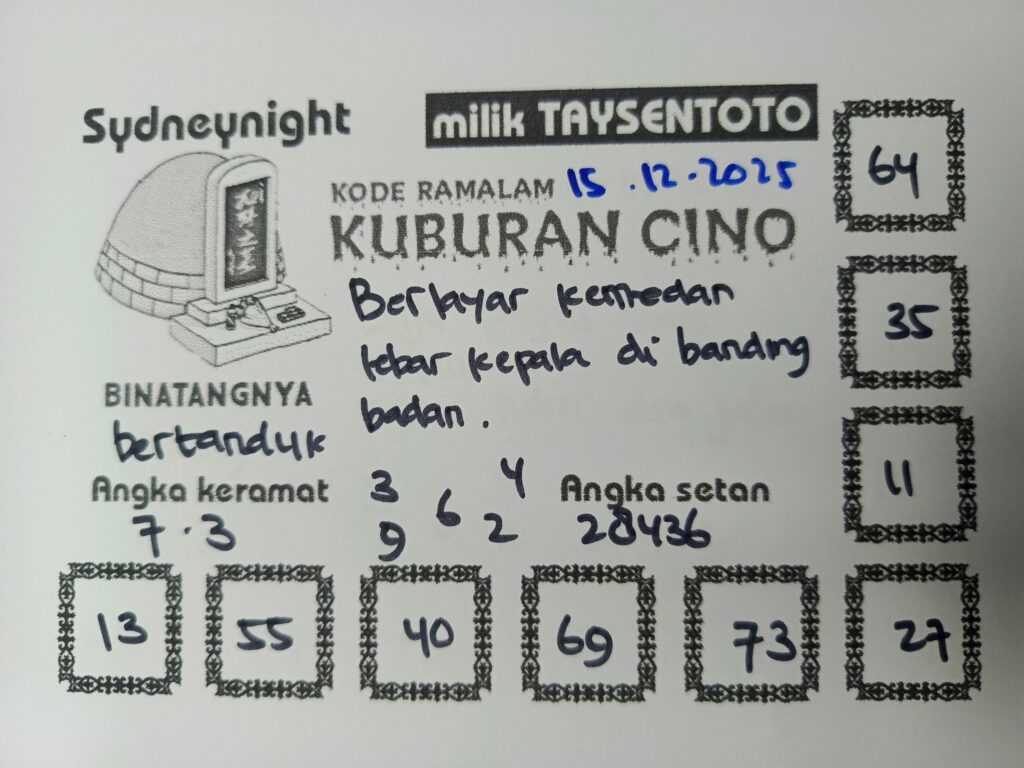 Sydneynight
milik TAYSENTOTO
KODE RAMALAM 15.12.2025
KUBURAN CINO
Berlayar kemedan
lebar kepala di banding
badan.
BINATANGNYA
bertanduk
Angka keramat
7.3
3 4
6
9 2
Angka setan
28436
64
35
11
13 55 40 69 73 27